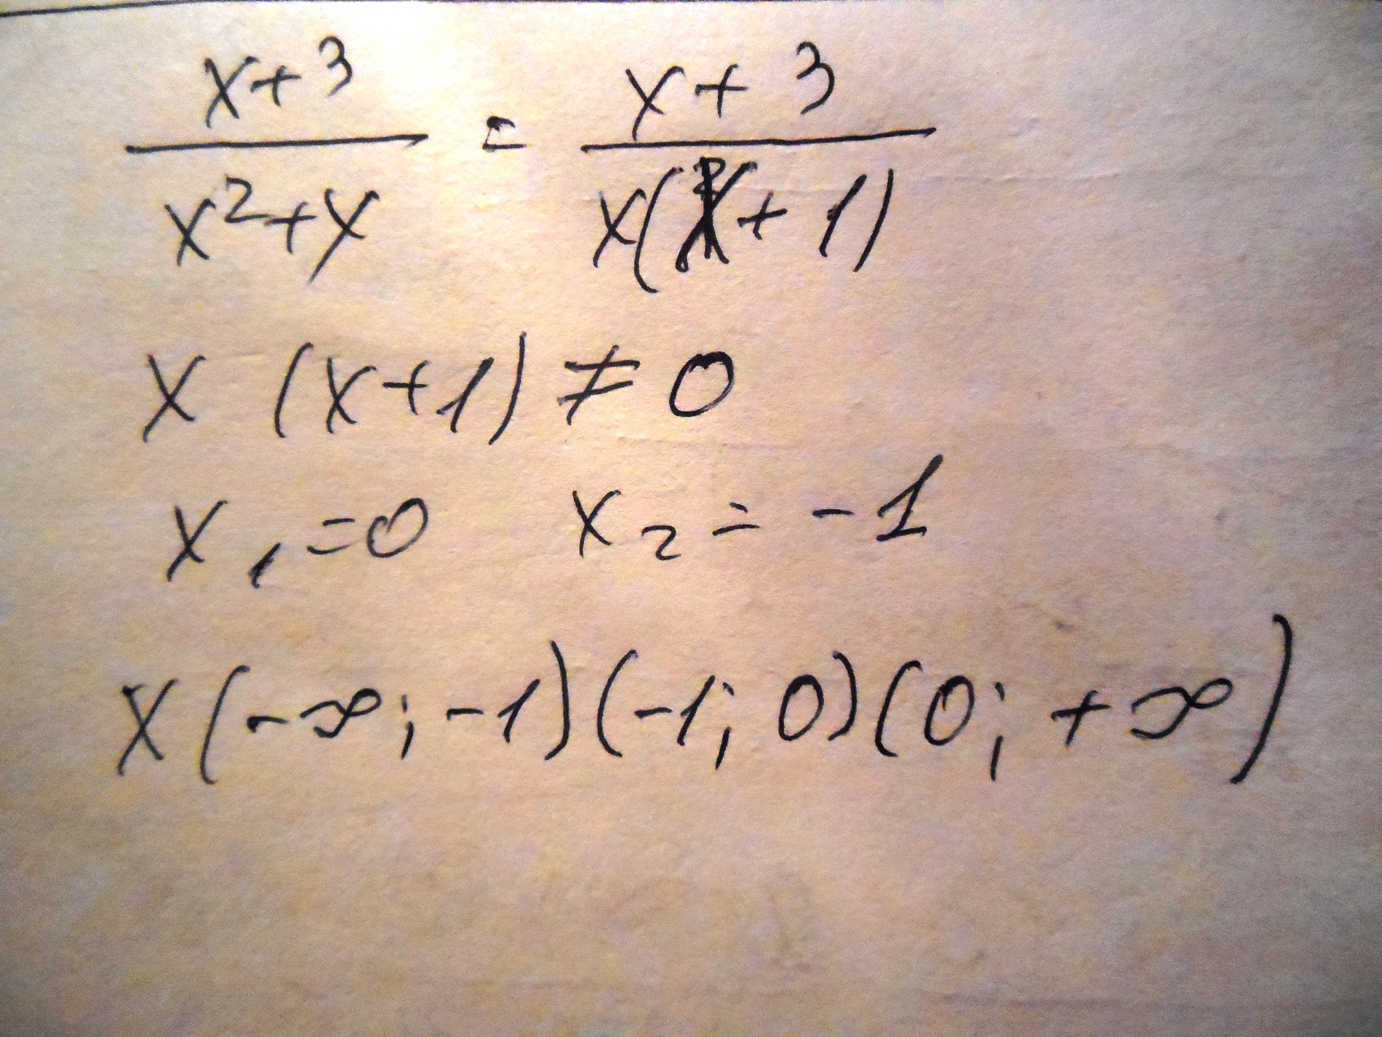 x+3/x²+x = x+3/x(x+1)
x (x+1) ≠ 0
x₁=0 x₂=-1
x(-∞;-1)(-1;0)(0;+∞)